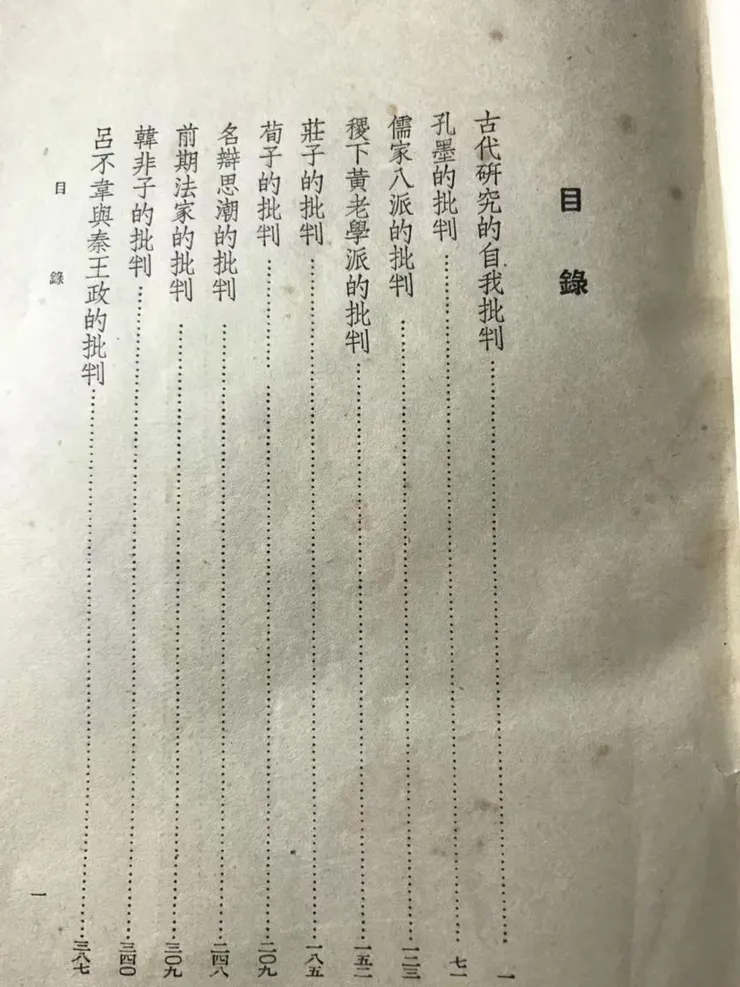 目錄
古代研究的自我批判…………一
孔墨的批判…………七一
儒家八派的批判…………一二三
稷下黃老學派的批判…………一五二
莊子的批判…………一八五
荀子的批判…………二〇九
名辯思潮的批判…………二四八
前期法家的批判…………三〇九
韓非子的批判…………三四〇
呂不韋與秦王政的批判…………三八七
目錄
一